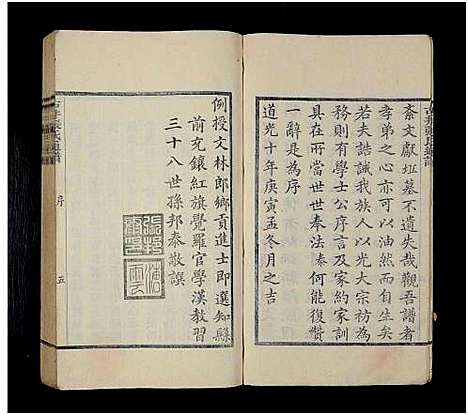 紊文獻坵墓不遺失哉觀吾譜者
孝弟之心亦可以油然而自生矣
若夫誥誡我族人以光大宗祊為
務則有學士公序言及家約家訓
在所當世世奉法泰何能復贊
一辭是為序
道光十年庚寅孟冬月之吉
例授文林郎鄉貢進士即選知縣
前充鑲紅旗覺羅官學漢教習
三十八世孫邦泰敬譔
序
五